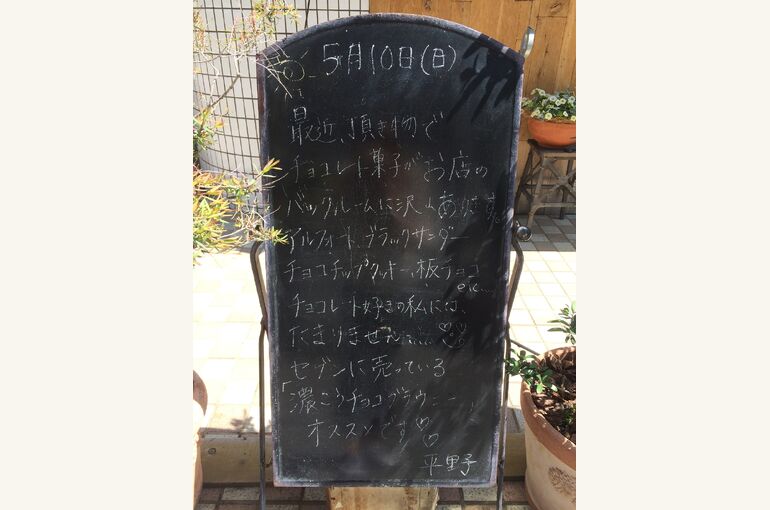 5月10日(日)
最近、頂き物で
チョコレート菓子がお店の
バックルームに沢山あります。
アルフォート、ブラックサンダー
チョコチップクッキー、板チョコ
etc...
チョコレート好きの私には、
たまりません…
セブンに売っている
「濃こうチョコブラウニー」
オススメです
平里子